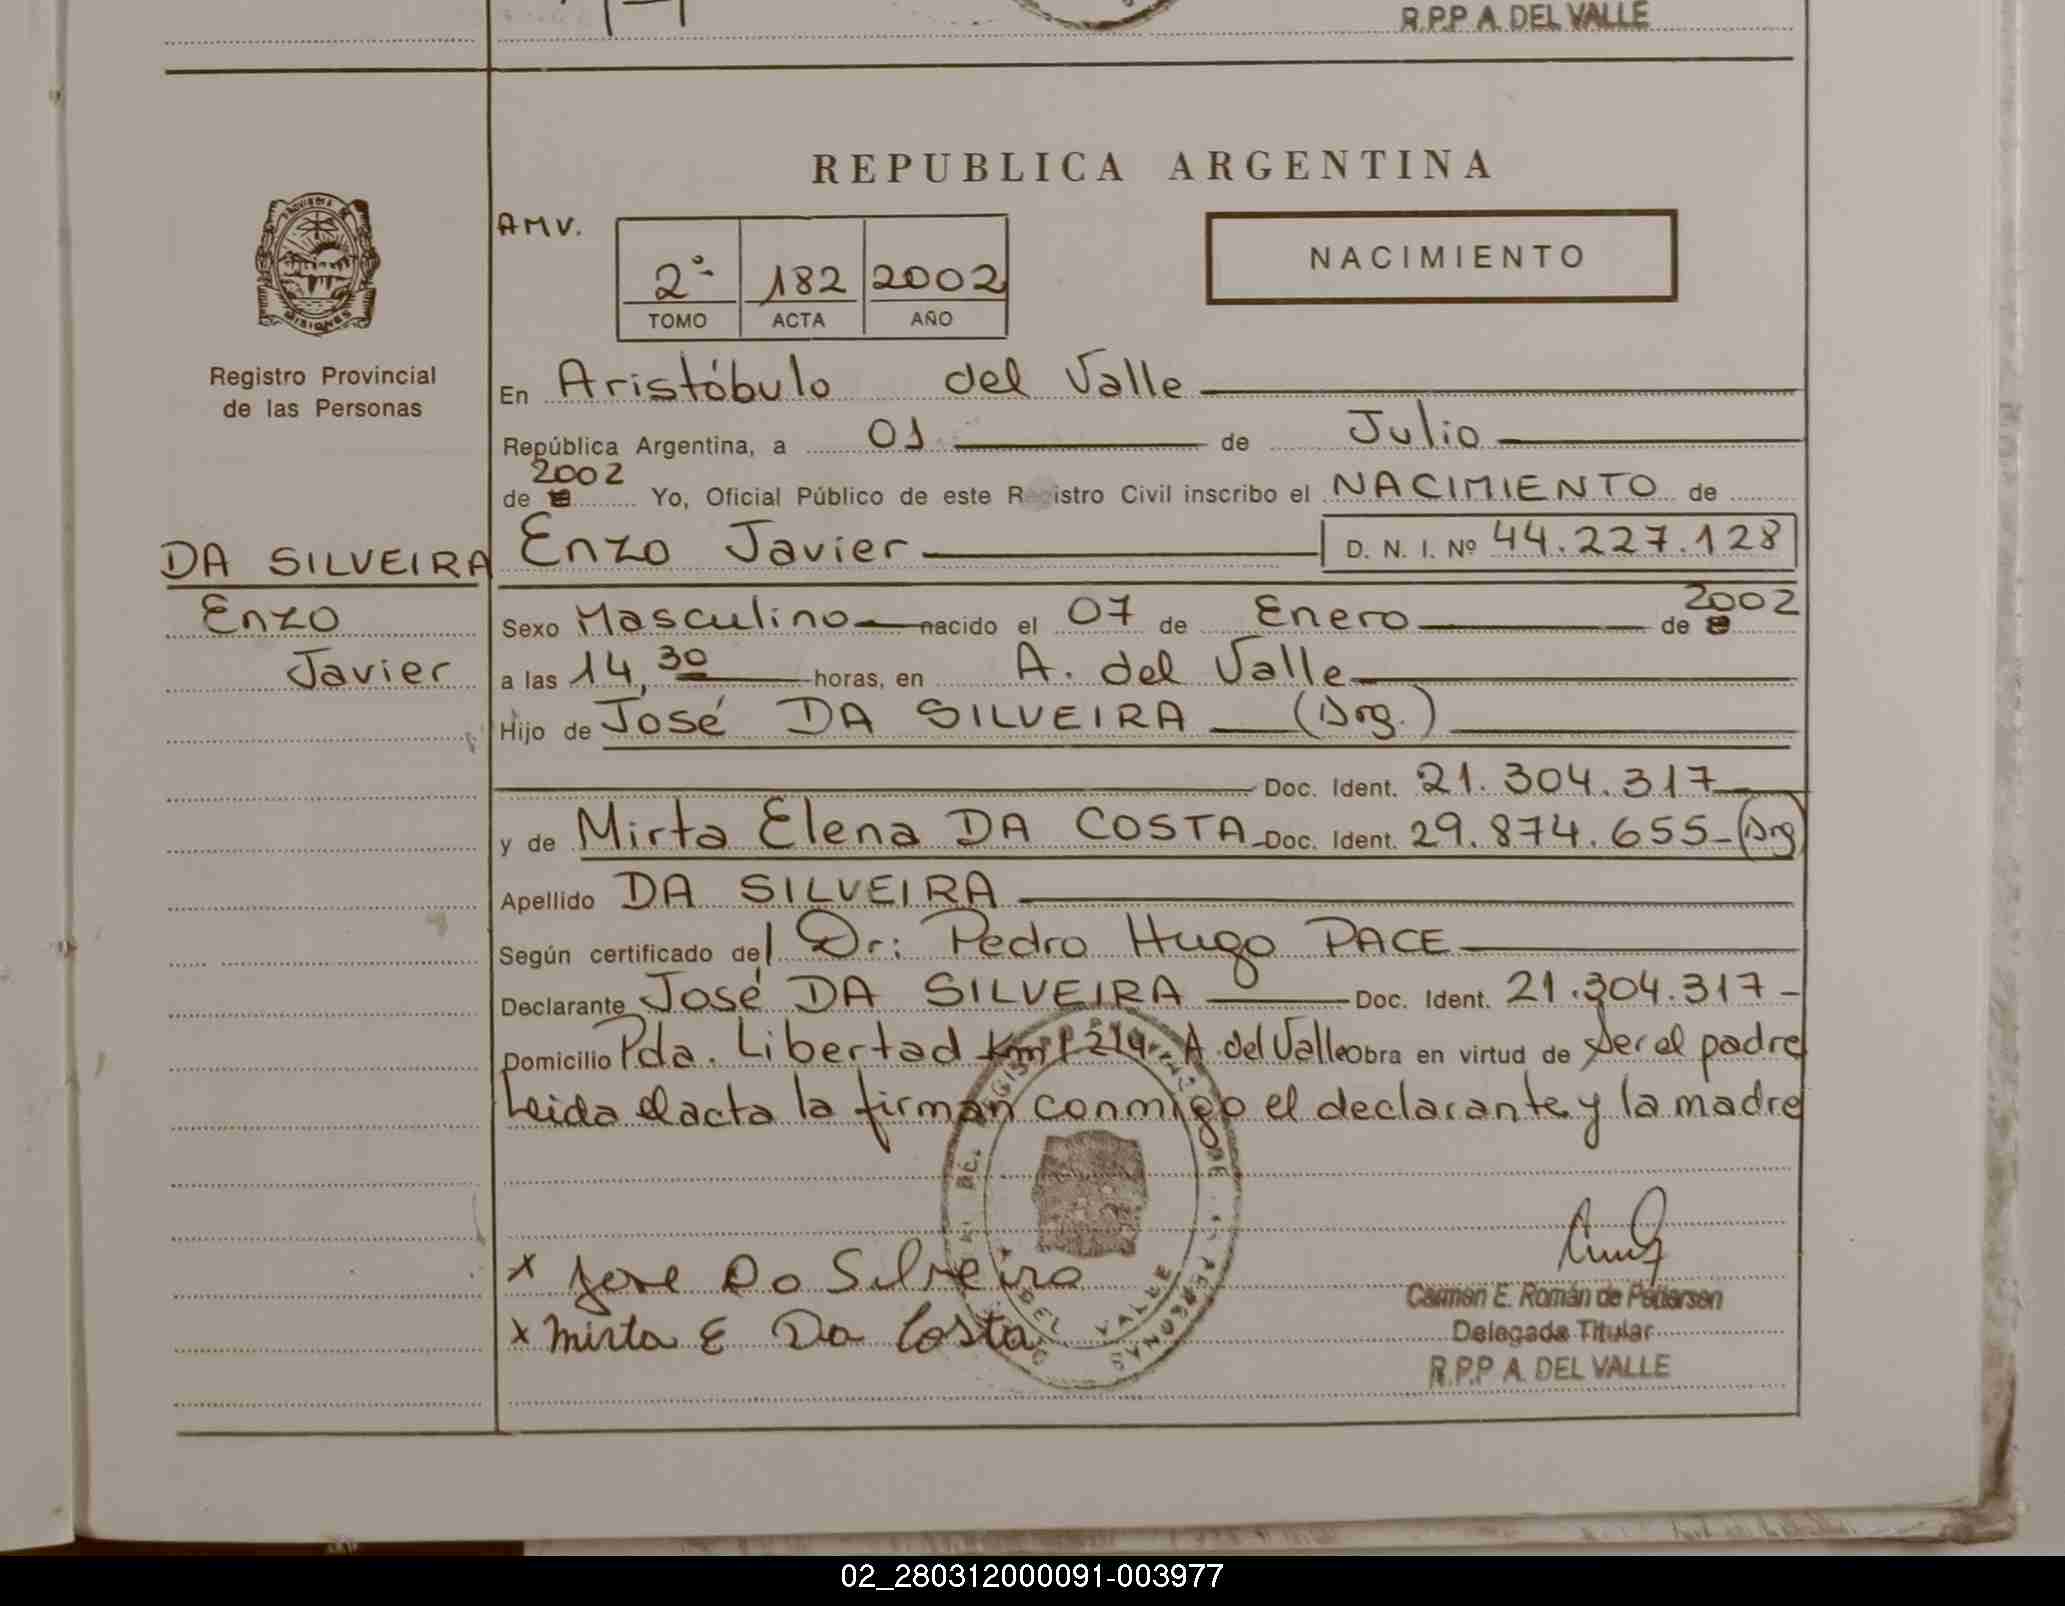 R.P.P A. DEL VALLE
REPUBLICA ARGENTINA
AMV.
2º 182 2002
TOMO ACTA AÑO
NACIMIENTO
PROVINCIA DE
MISIONES
Registro Provincial
de las Personas
En Aristóbulo del Valle
República Argentina, a 01 de Julio
de 2002 Yo, Oficial Público de este Registro Civil inscribo el NACIMIENTO de
DA SILVEIRA
Enzo
Javier
Enzo Javier D. N. I. Nº 44.227.128
Sexo Masculino nacido el 07 de Enero de 2002
a las 14,30 horas, en A. del Valle
Hijo de José DA SILVEIRA (Arg.)
Doc. Ident. 21.304.317
y de Mirta Elena DA COSTA Doc. Ident. 29.874.655 (Arg)
Apellido DA SILVEIRA
Según certificado del Dr: Pedro Hugo PACE
Declarante José DA SILVEIRA Doc. Ident. 21.304.317
Domicilio Pda. Libertad Km 214 A. del Valle Obra en virtud de Ser el padre
Leida el acta la firman conmigo el declarante y la madre
DEL VALLE
PERSONAS
x Jose Da Silveira
x Mirta E Da Costa
Carmen E. Román de Pedersen
Delegada Titular
R.P.P A. DEL VALLE
02_280312000091-003977